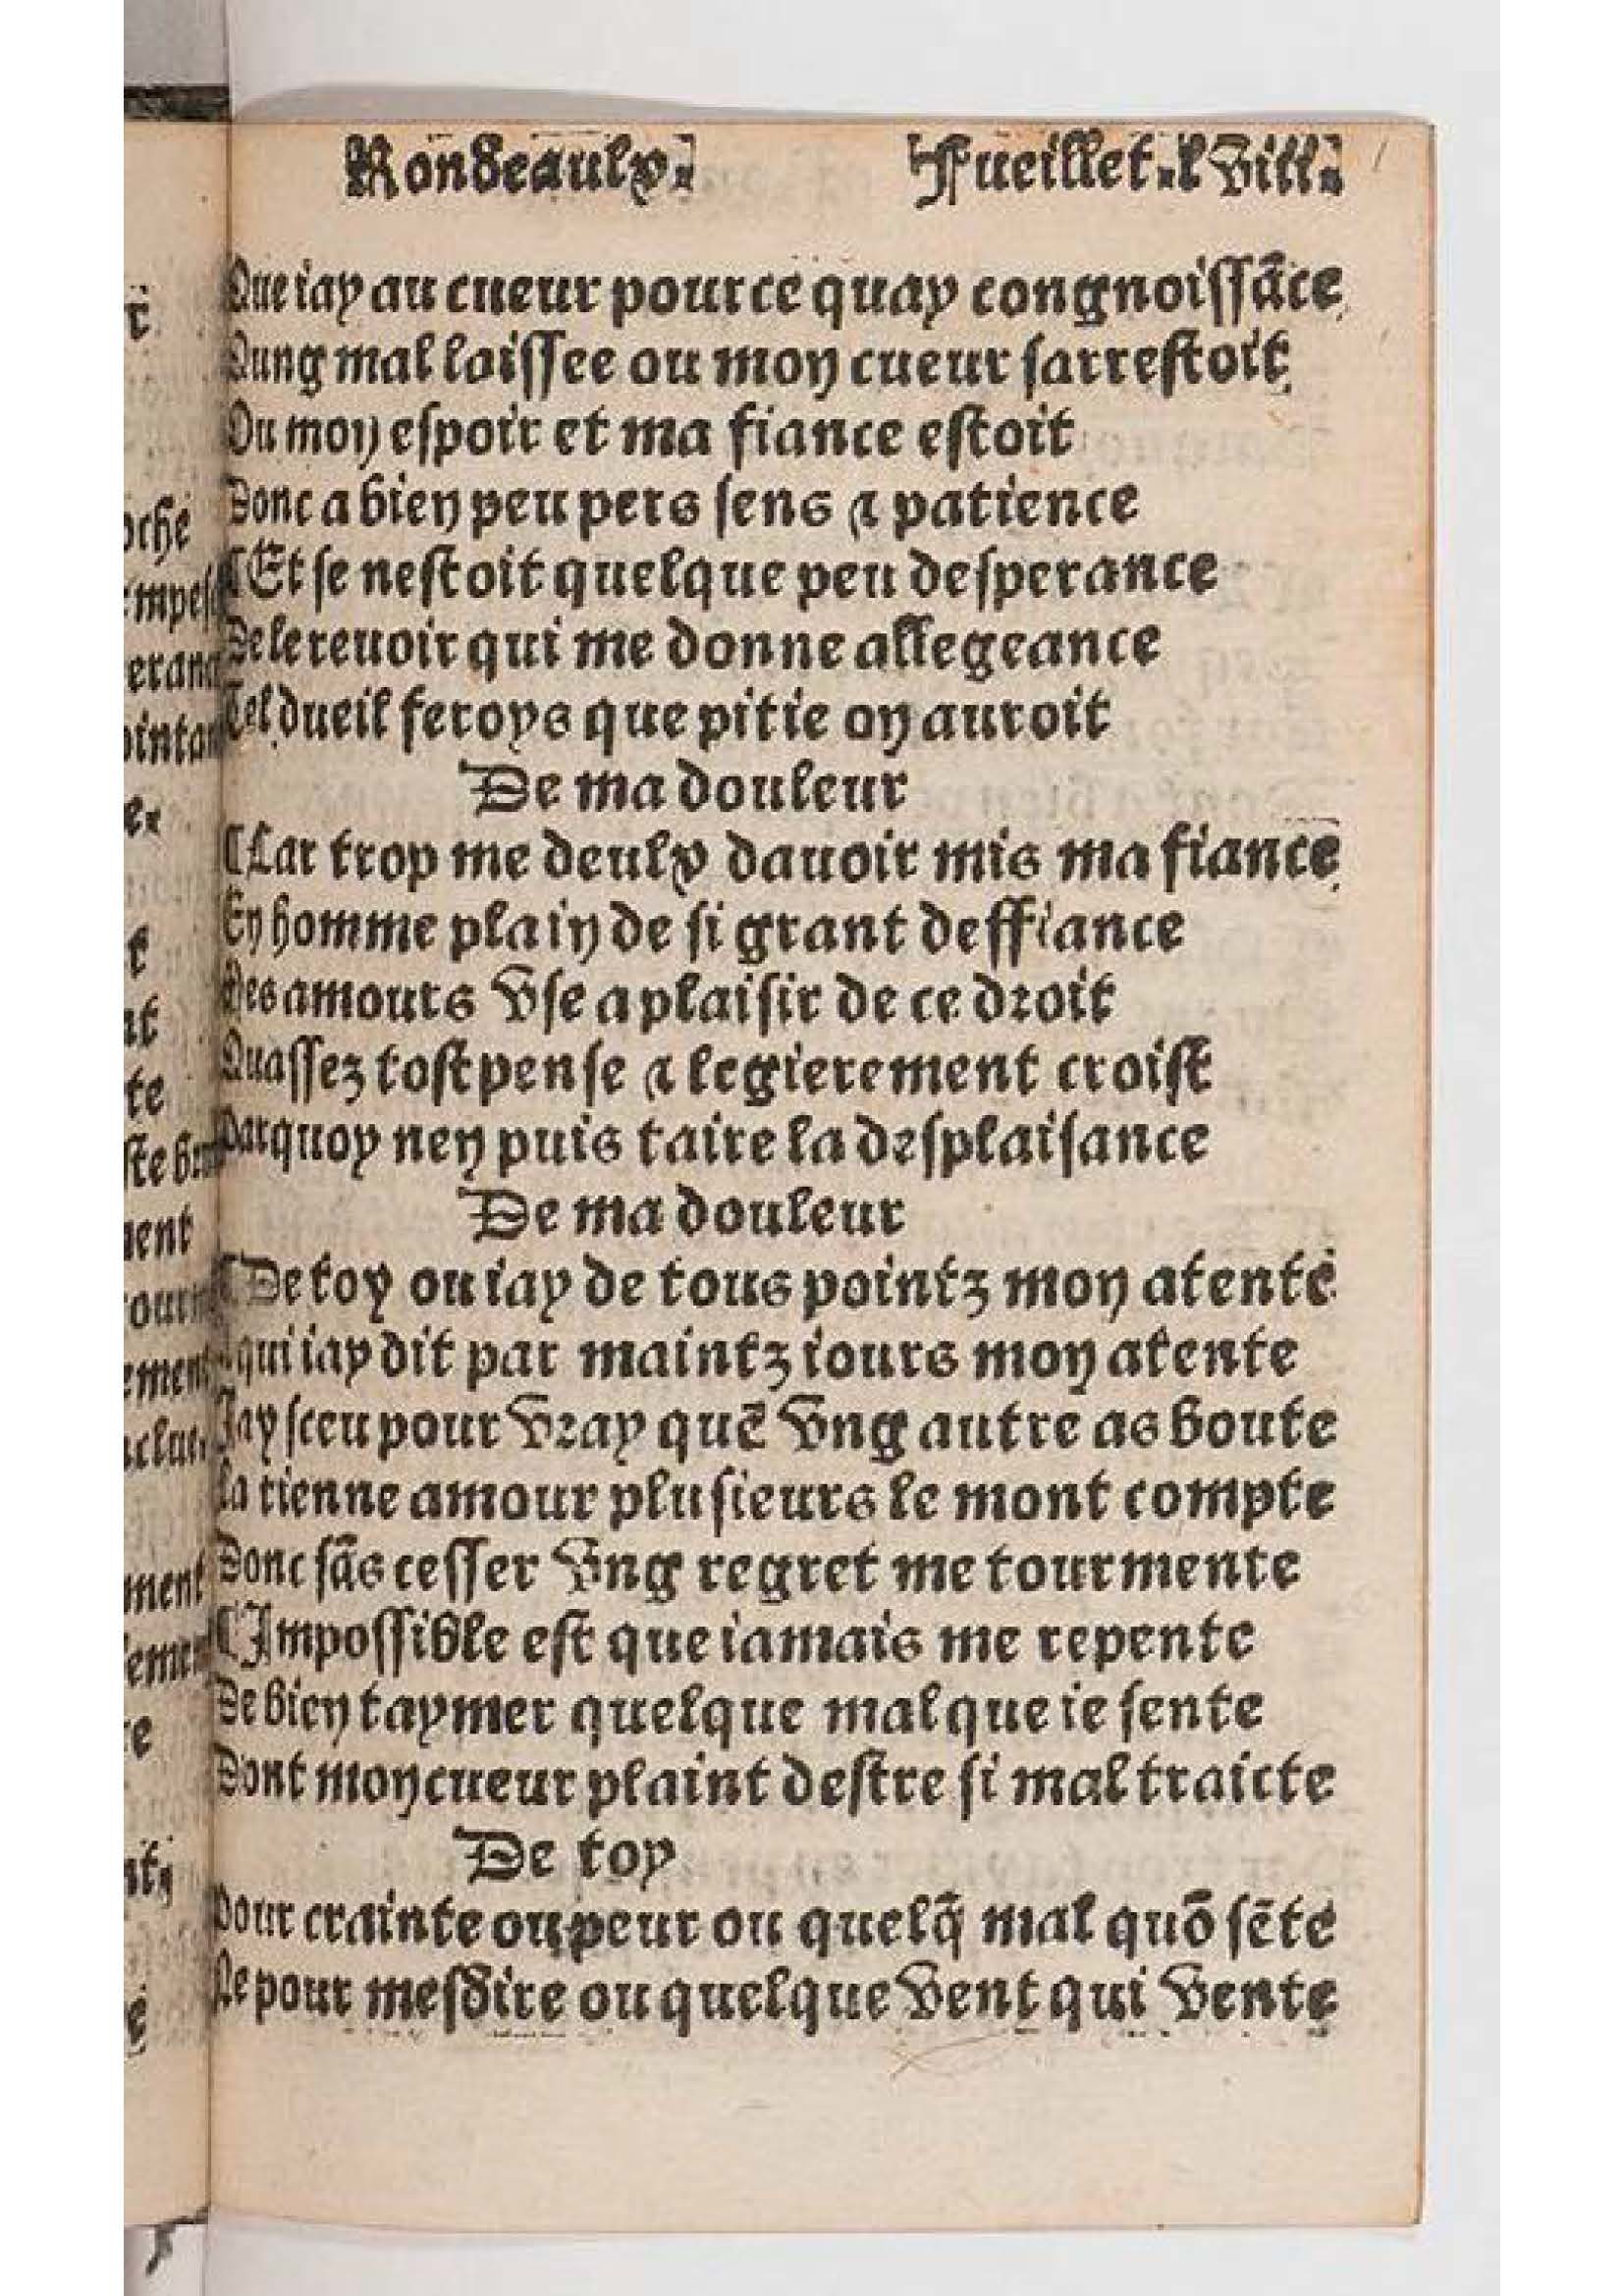 Rondeaulx. Fueillet.lviii.
Que iay au cueur pource quay congnoissāce
Dung mal laissee ou mon cueur sarrestoit
Ou mon espoir et ma fiance estoit
Donc a bien peu pers sens & patience
¶Et se nestoit quelque peu desperance
De le reuoir qui me donne allegeance
Tel dueil feroys que pitie on auroit
De ma douleur
¶Car trop me deulx dauoir mis ma fiance
En homme plain de si grant deffiance
Des amours vse a plaisir de ce droit
Quassez tost pense & legierement croist
Parquoy nen puis taire la desplaisance
De ma douleur
¶De toy ou iay de tous pointz mon atente
A qui iay dit par maintz iours mon atente
Jay sceu pour vray quē vng autre as boute
La tienne amour plusieurs le mont compte
Donc sās cesser vng regret me tourmente
¶Impossible est que iamais me repente
De bien taymer quelque mal que ie sente
Dont mon cueur plaint destre si mal traicte
De toy
Pour crainte ou peur ou quelq̄ mal quō sēte
Ne pour mesdire ou quelque vent qui vente